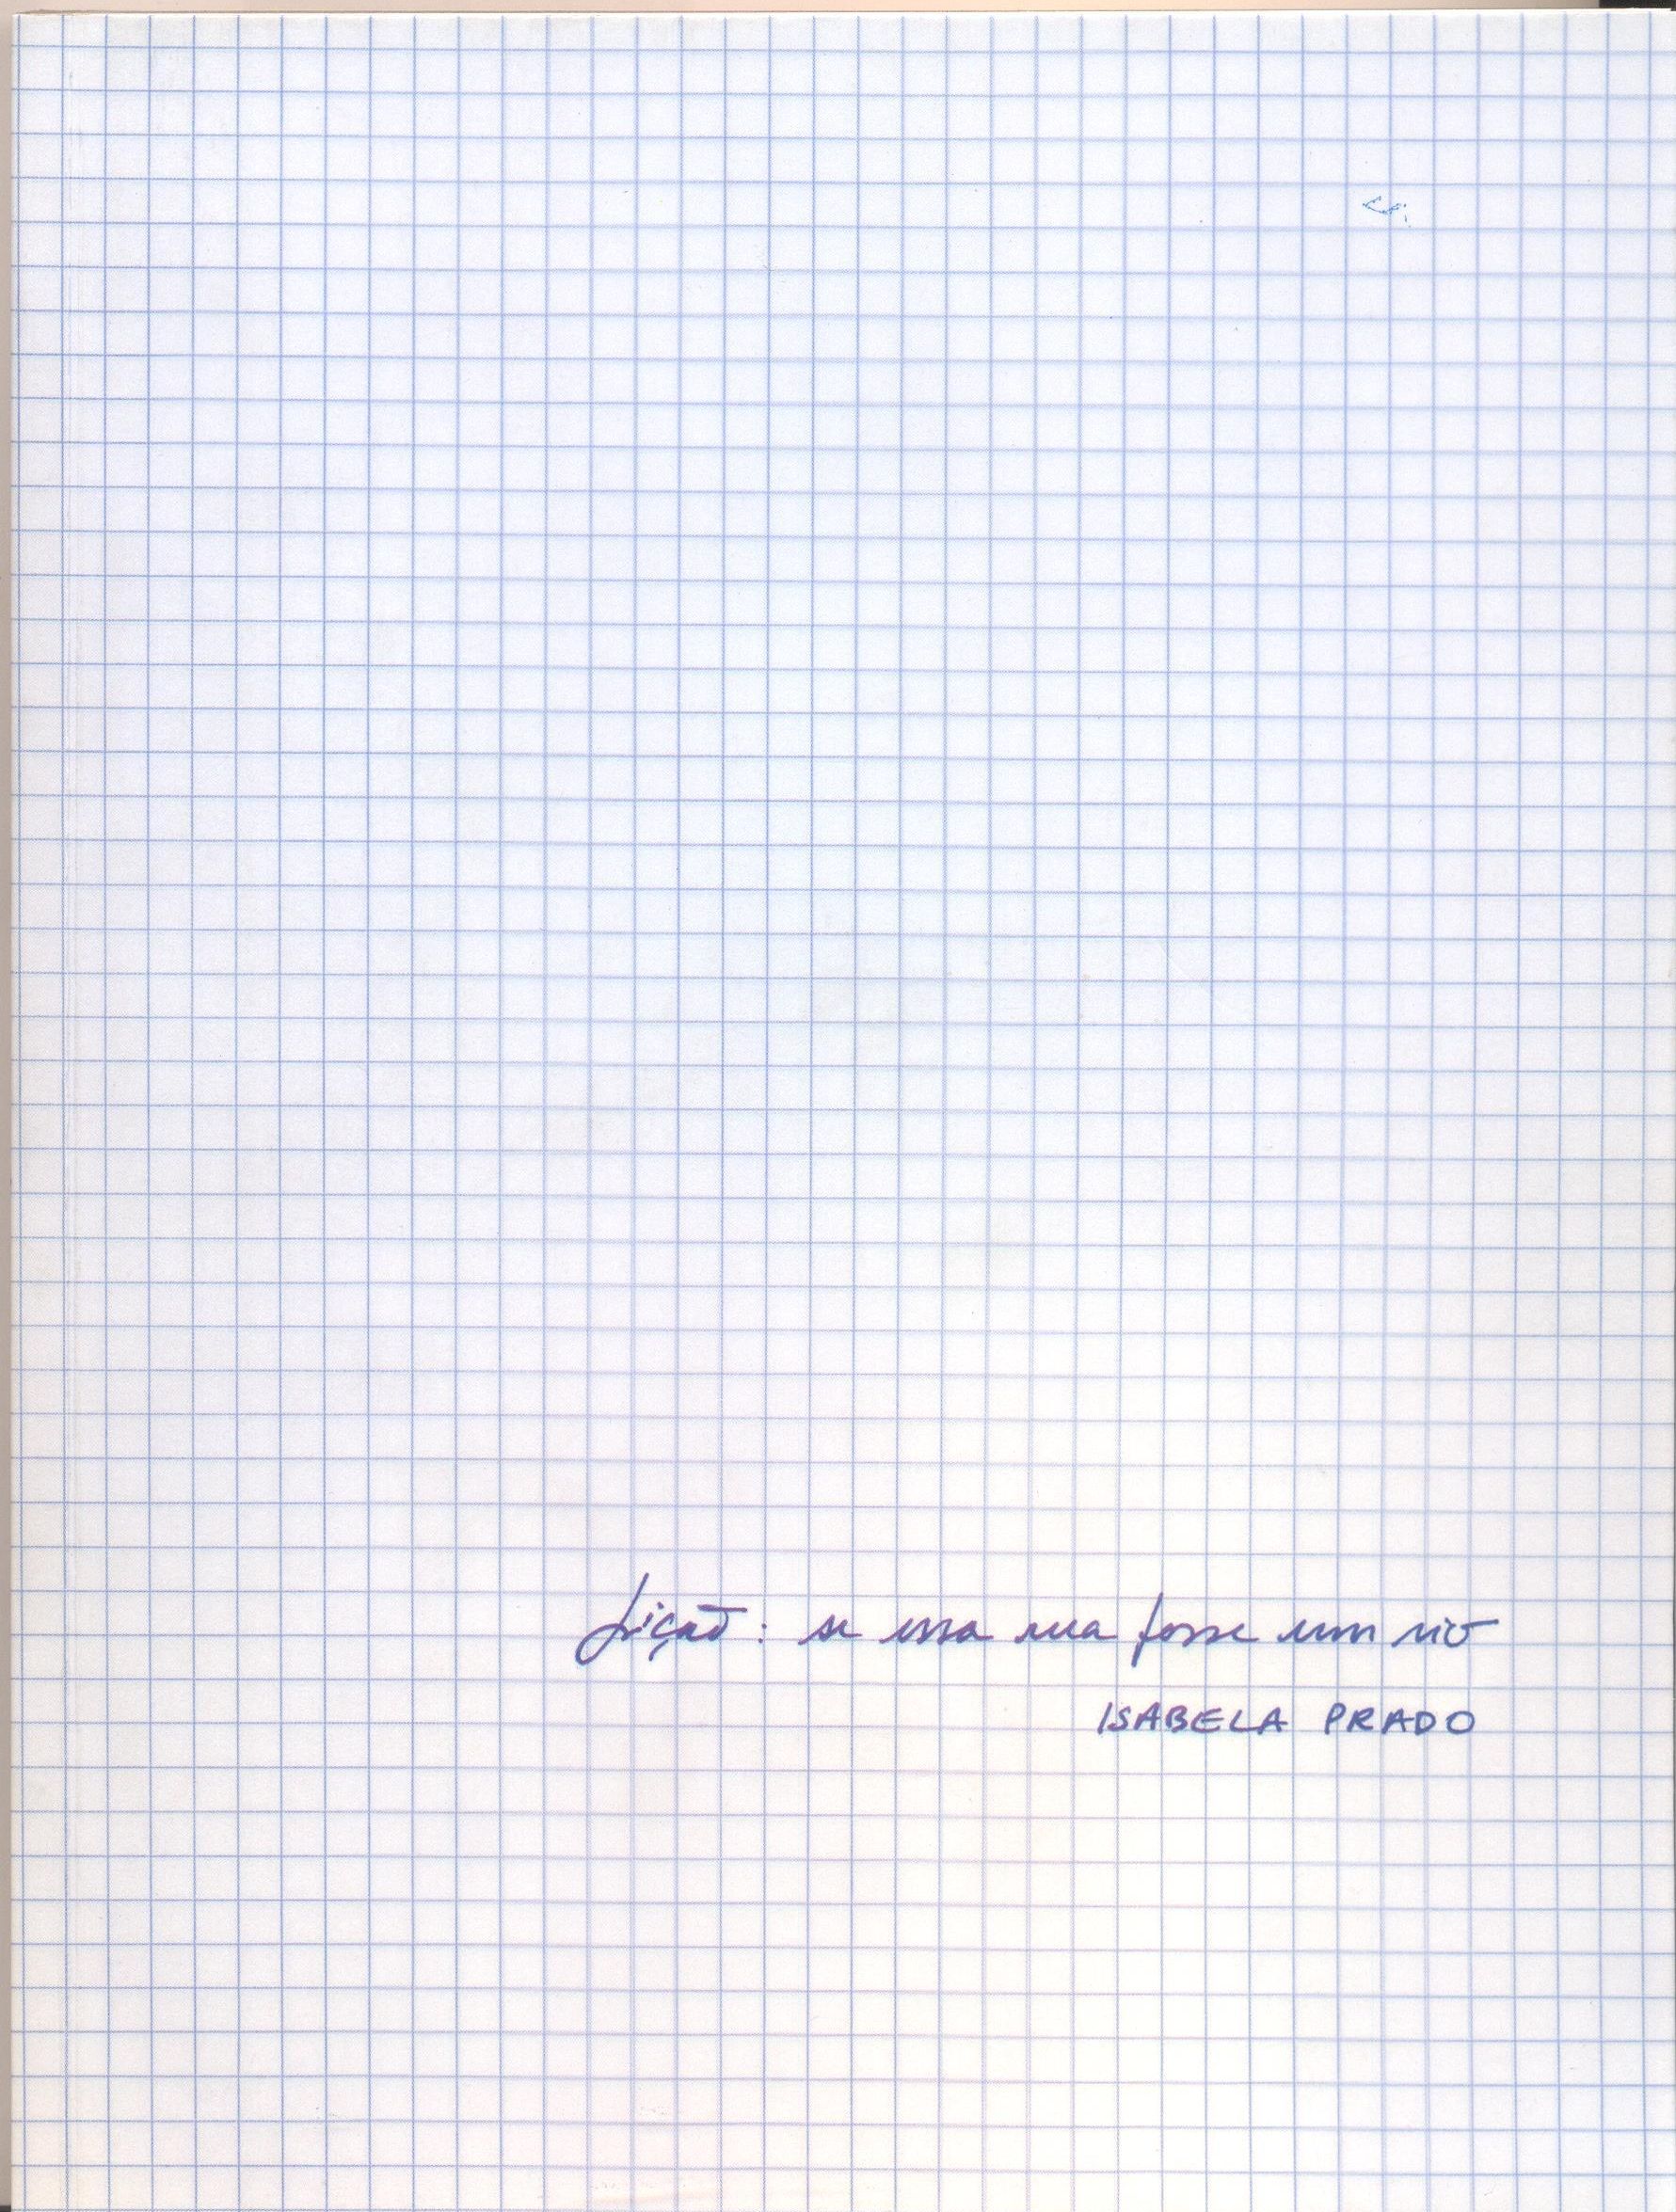 Lição: se essa rua fosse um rio
ISABELA PRADO